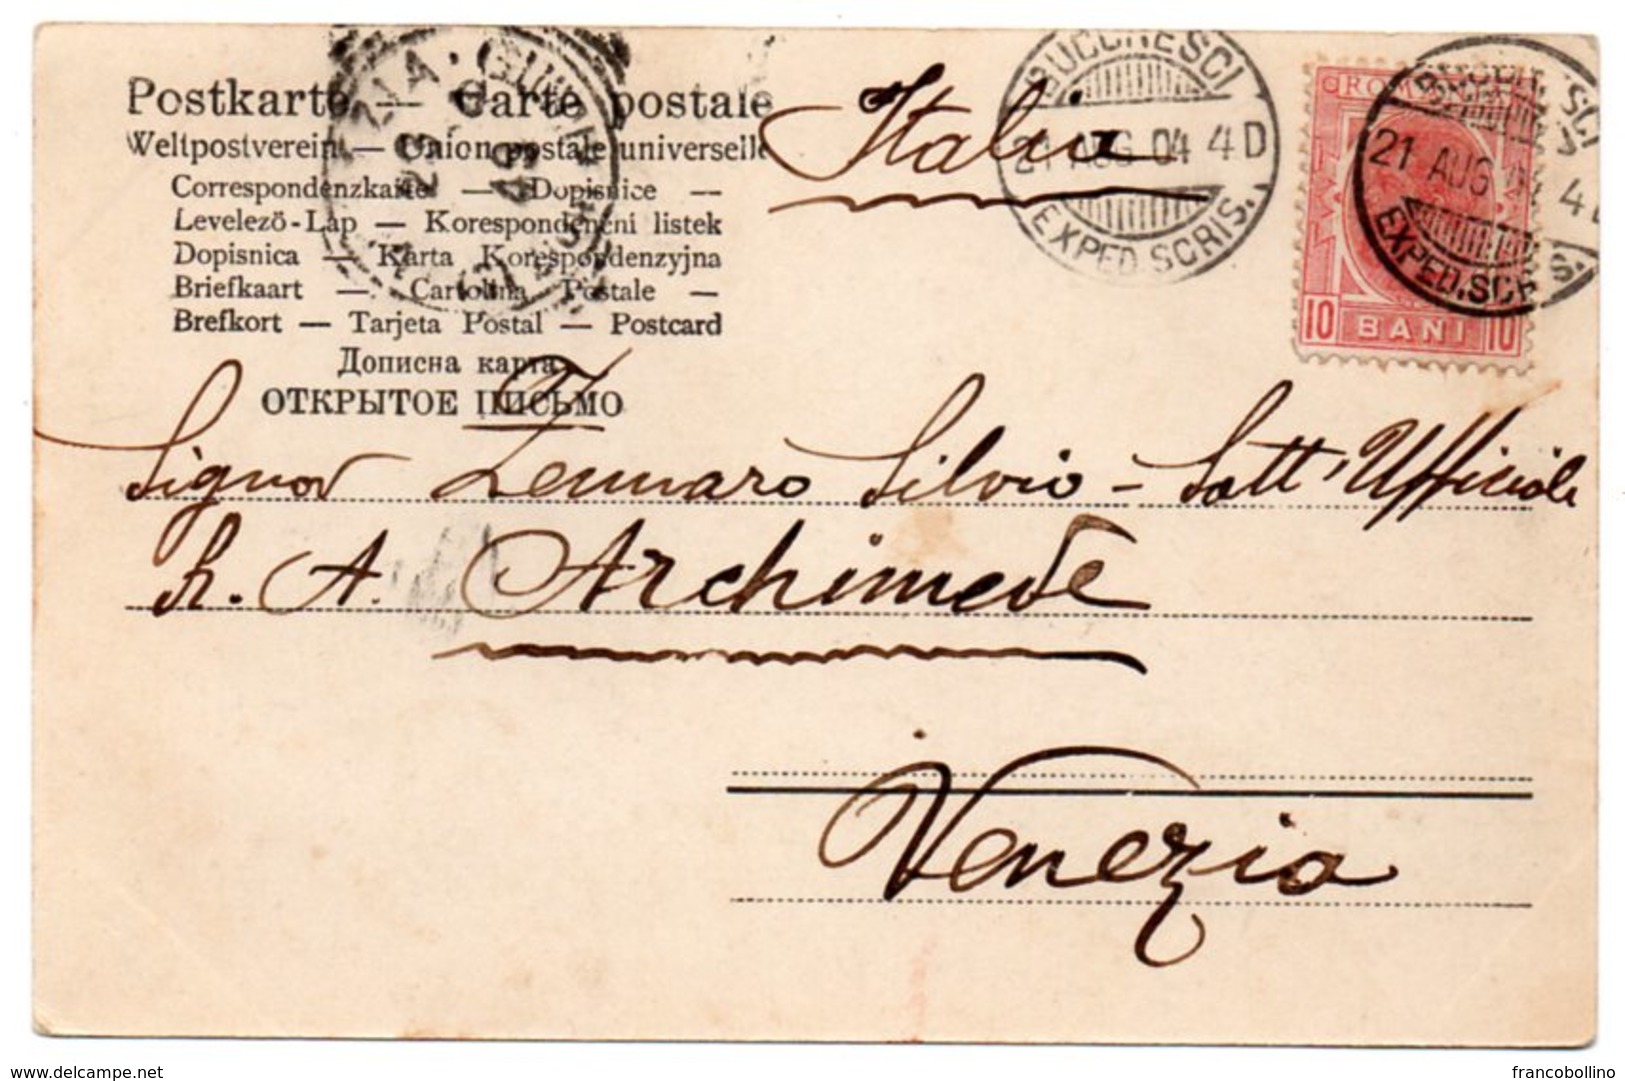 Postkarte — Carte postale
Weltpostverein — Union postale universelle
Correspondenzkarte — Dopisnice —
Levelező-Lap — Korespondenčni listek
Dopisnica — Karta Korespondenzyjna
Briefkaart — Cartolina Postale —
Brefkort — Tarjeta Postal — Postcard
Дописна карта
ОТКРЫТОЕ ПИСЬМО
Italia
BUCURESCI
21 AUG 04 4D
EXPED.SCRIS.
21 AUG 04 4D
EXPED.SCRIS.
10 BANI 10
Signor Zennaro Silvio - Sott'Ufficiale
R. A. Archimede
Venezia
www.delcampe.net
francobollino